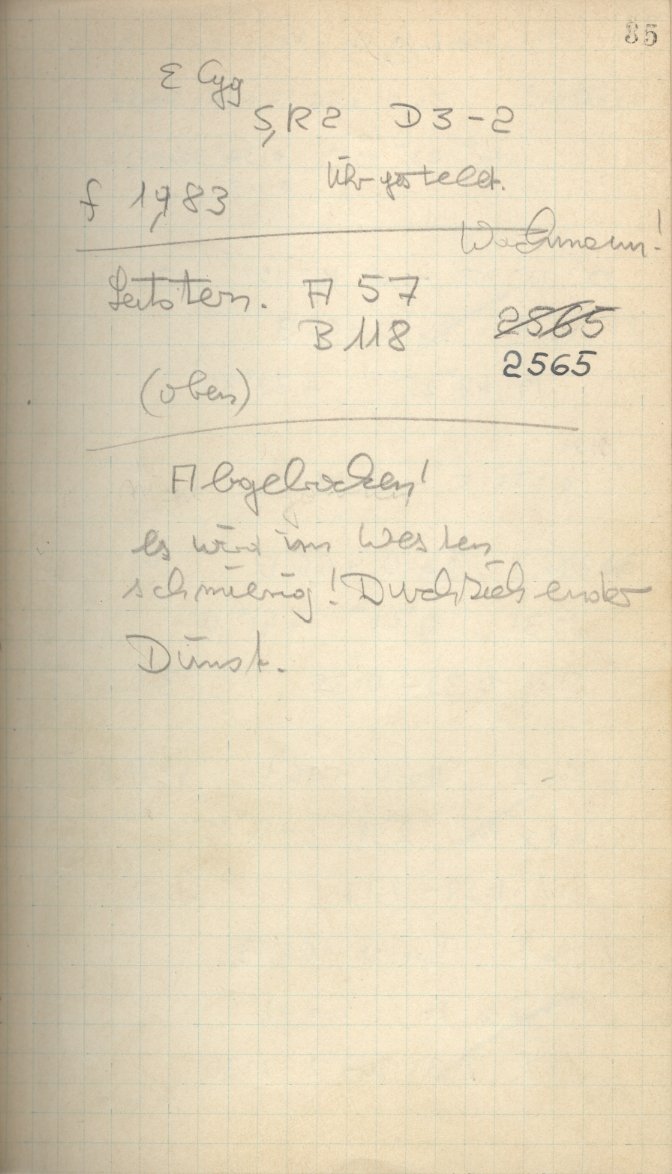 85
ε Cyg
S,R2 D3-2
Uhr gestellt.
f 1,983
Wachmann!
Leitstern. A 57
B 118
2565
2565
(oben)
Abgebrochen!
Es wird im Westen
schmierig! Durchziehender
Dunst.